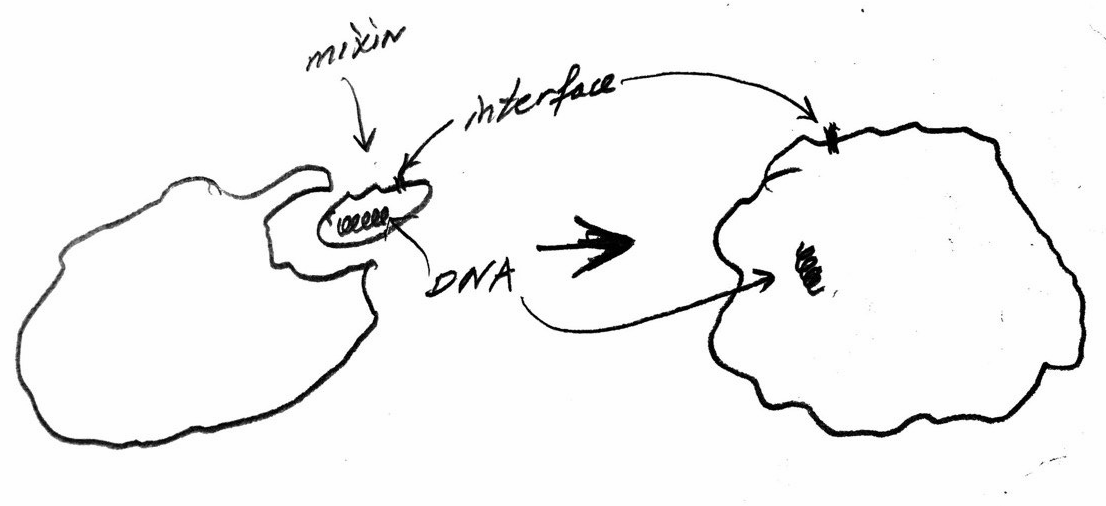 mixin
interface
DNA